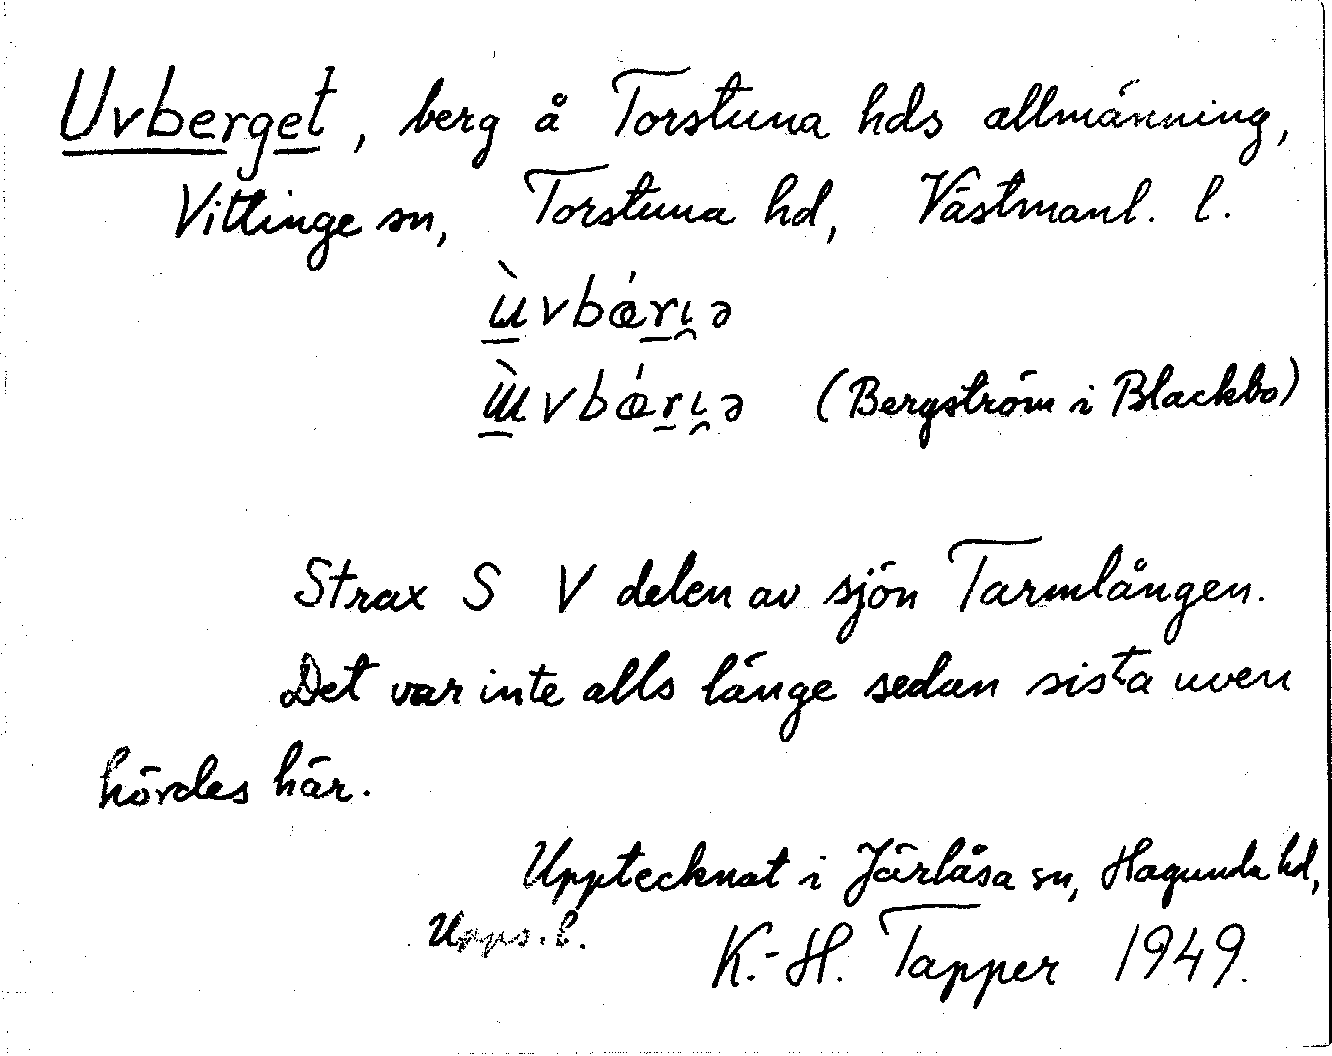 Uvberget, berg å Torstuna hds allmänning,
Vittinge sn, Torstuna hd, Västmanl. l.
(Bergström i Blackbo)
Strax S V delen av sjön Tarmlången.
Det var inte alls länge sedan sista uven
hördes här.
Upptecknat i Järlåsa sn, Hagunda hd,
Upps. l.
K.-H. Tapper 1949.